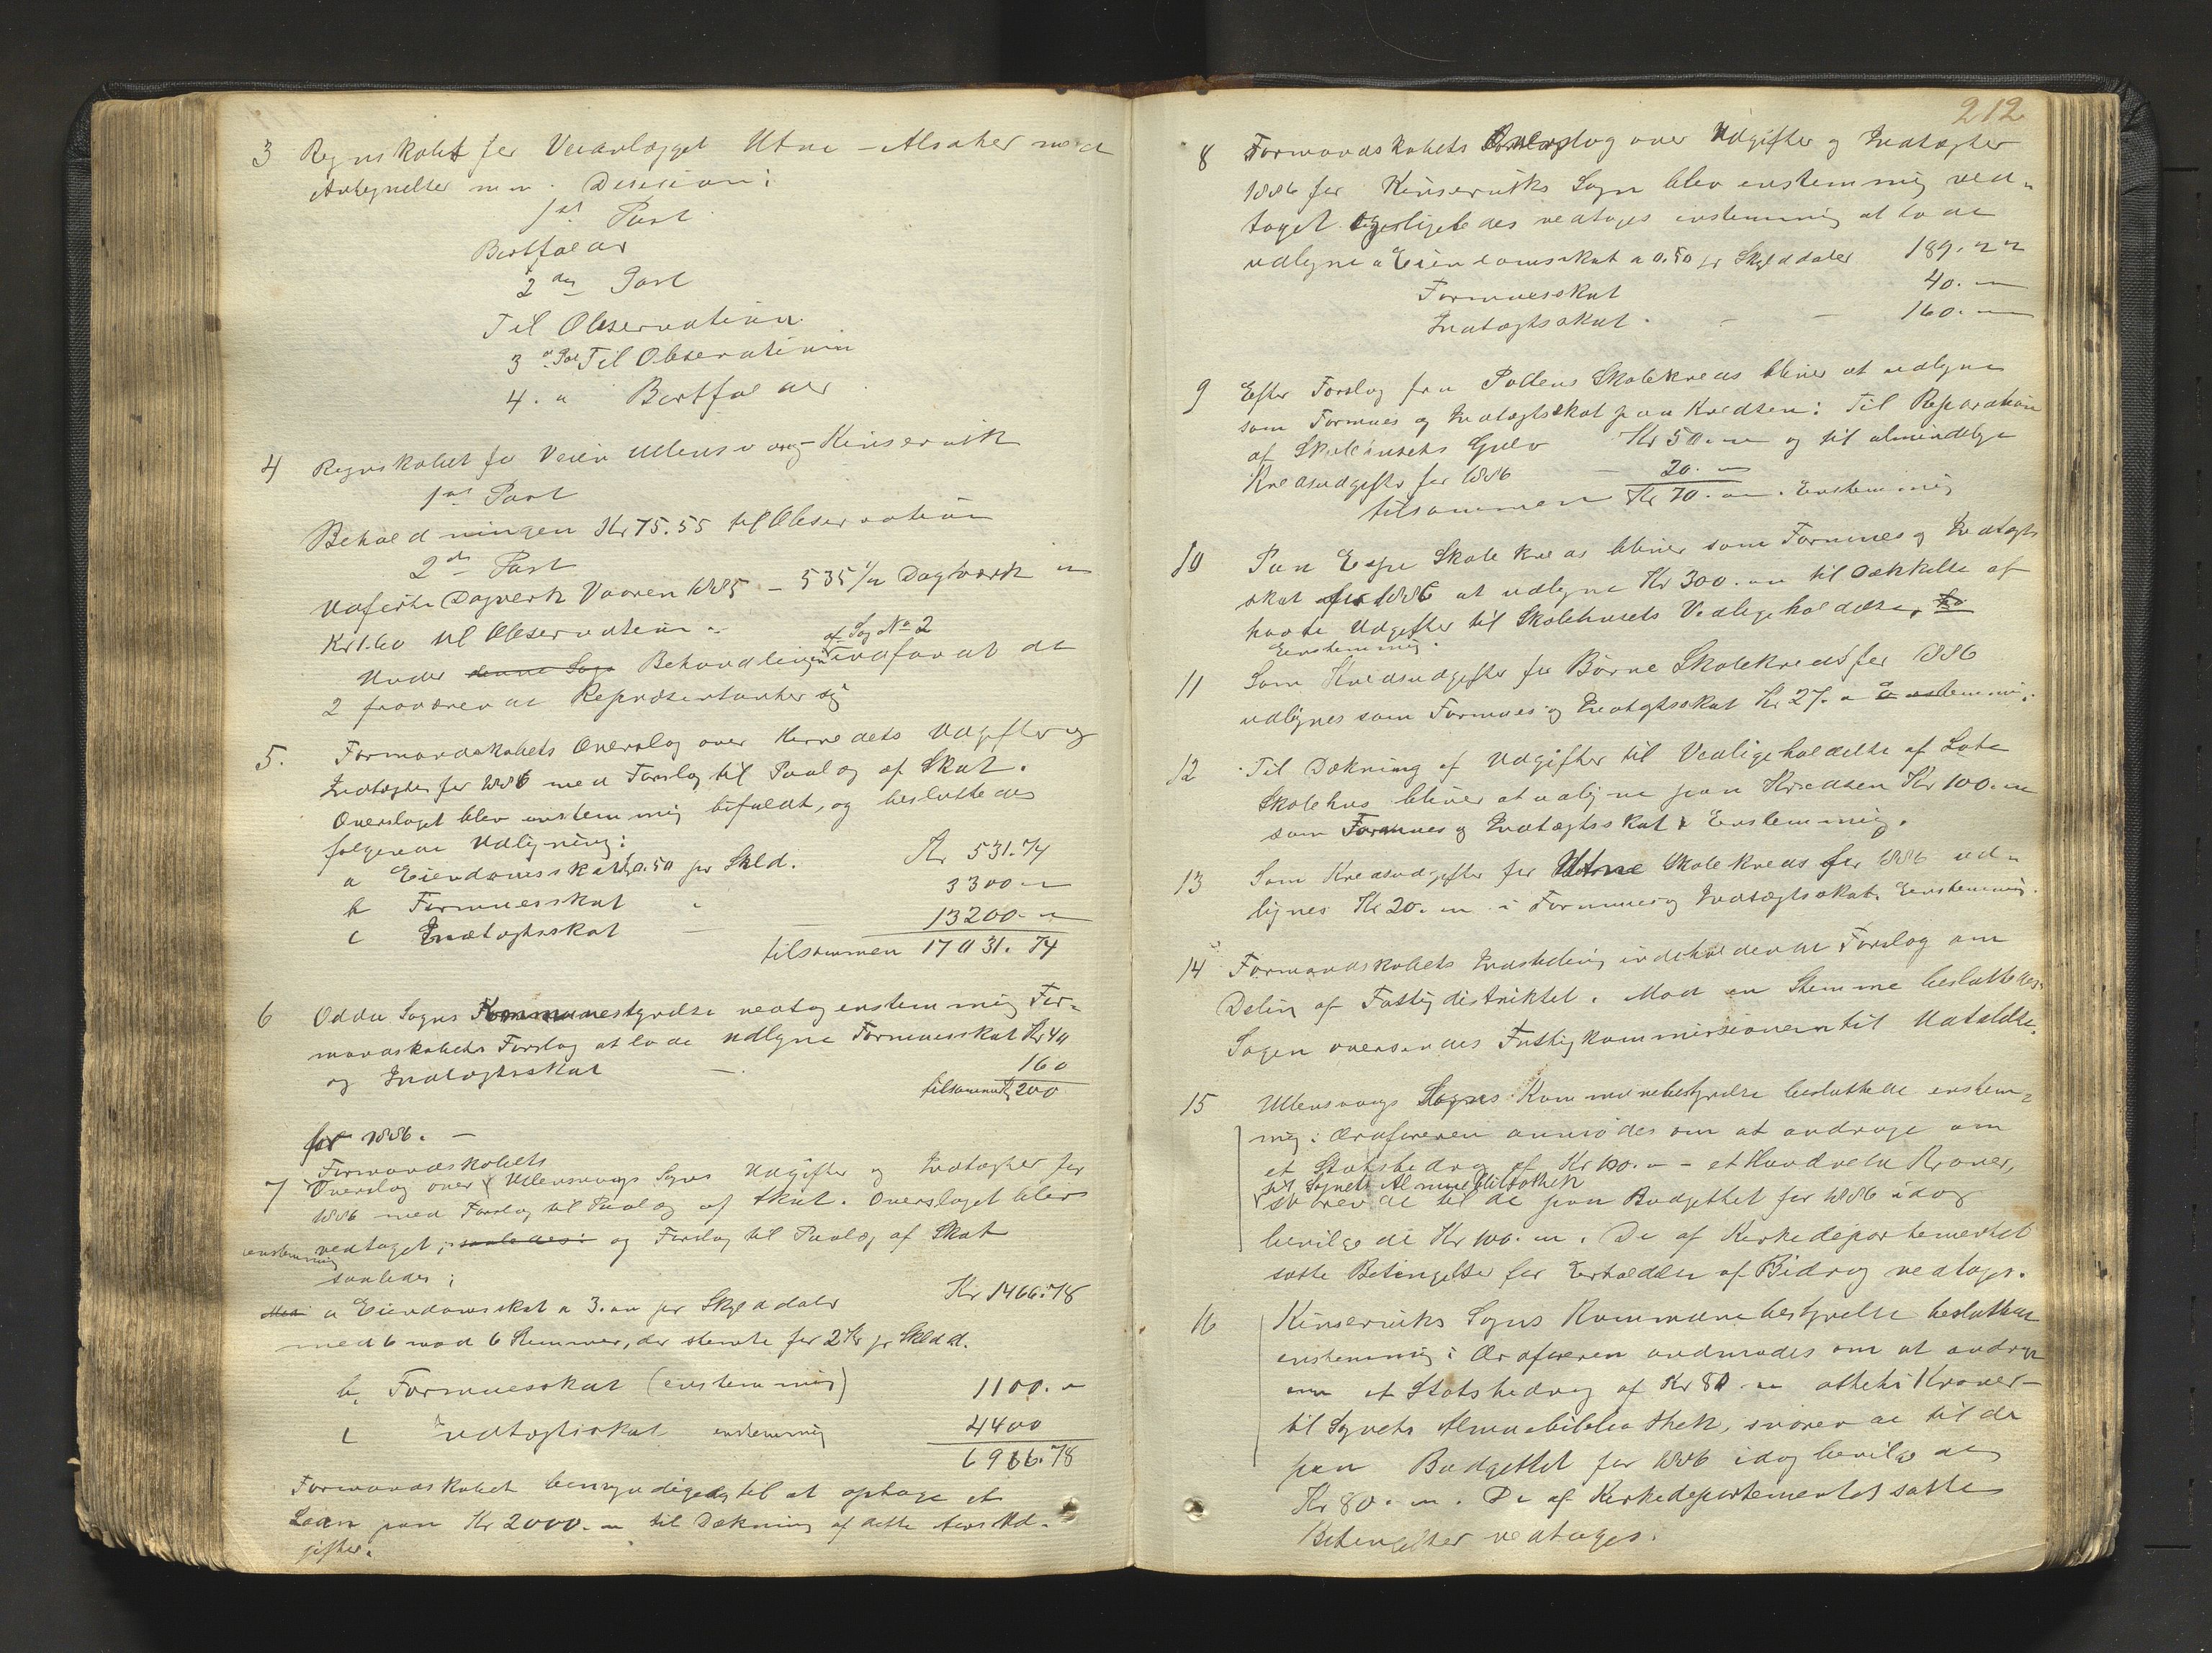 3 Regnskabet for Veianlægget Utne - Alsaker med
Antegnelser m.m. Decision:
1ste Post
Bortfalder
2den Post
Til Observation
3die Post Til Observation
4. " Bortfalder
4 Regnskabet for Veien Ullensvang - Kinservik
1ste Post
Beholdningen Kr 75.55 til Observation
2den Post
Udførte Dagverk Vaaren 1885 - 535 1/2 Dagværk a
Kr 1.60 til Observation.
af Sag No 2
Under denne Sags Behandlingen indfandt de
2 fraværende Repræsentanter sig
5. Formandskabets Overslag over Herredets Udgifter og
Indtægter for 1886 med Forslag til Paalæg af Skat.
Overslaget blev enstemmig bifaldt, og besluttedes
følgende Udligning:
a Eiendomsskat 0.50 pr Skld. Kr 531.74
b Formuesskat - 3300 "
c Indtægtsskat - 13200 "
tilsammen 17031.74
6 Odda Sogns Kommunestyrelse vedtog enstemmig For-
mandskabets Forslag at lade udligne Formuesskat Kr 40
og Indtægtsskat - 160
tilsammen Kr 200
for 1886. -
Formandskabets
7 Overslag over Ullensvangs Sogns Udgifter og Indtægter for
1886 med Forslag til Paalæg af Skat. Overslaget blev
enstemmig vedtaget, saaledes: og Forslag til Paalæg af Skat
saaledes:
a Eiendomsskat a 3.00 pr Skylddaler Kr 1466.78
med 6 mod 6 Stemmer, der stemte for 2 Kr pr Skldd.
b, Formuesskat (enstemmig) 1100. "
c Indtægtsskat enstemmig 4400
6966.78
Formandskabet bemyndigedes til at optage et
Laan paa Kr 2000. " til Dækning af dette Aars Ud-
gifter.
212
8 Formandskabets Overslag over Udgifter og Indtægter
1886 for Kinserviks Sogn blev enstemmig ved-
taget og ligeledes vedtoges enstemmig at lade
udligne a Eiendomsskat a 0.50 pr Skylddaler 189. "
Formuesskat 40. "
Indtægtsskat. - - 160. "
9 Efter Forslag fra Pollens Skolekreds bliver at udligne
som Formues og Indtægtsskat paa Kredsen: Til Reparation
af Skolehusets Gulv Kr 50. " og til almindelige
Kredsudgifter for 1886 - 20. "
tilsammen Kr 70. ". Enstemmig
10 Paa Espe Skolekreds bliver som Formues og Indtægts
skat for 1886 at udligne Kr 300. " til Dækkelse af
havte Udgifter til Skolehusets Vedligeholdelse.
Enstemmig.
11 Som Kredsudgifter for Børve Skolekreds for 1886
udlignes som Formues og Indtægtsskat Kr 27. " Enstemmig.
12 Til Dækning af Udgifter til Vedligeholdelse af Lote
Skolehus bliver at udligne paa Kredsen Kr 100. "
som Formues og Indtægtsskat. Enstemmig.
13 Som Kredsudgifter for Utne Skolekreds for 1886 ud-
lignes Kr 20. " i Formues og Indtægtsskat. Enstemmig.
14 Formandskabets Indstilling indeholdende Forslag om
Deling af Fattigdistriktet. Mod en Stemme besluttedes:
Sagen oversendes Fattigkommissionen til Udtalelse.
15 Ullensvangs Sogns Kommunebestyrelse besluttede enstem-
mig: Ordføreren anmodes om at andrage om
et Statsbidrag af Kr 100. " - et Hundrede Kroner,
til Sognets Almuebibliothek
svarende til de paa Budgettet for 1886 idag
bevilgede Kr 100. ". De af Kirkedepartementet
satte Betingelser for Erholdelse af Bidrag vedtages.
16 Kinserviks Sogns Kommunebestyrelse besluttede
enstemmig: Ordføreren andmodes om at andrage
om et Statsbidrag af Kr 80 " otteti Kroner -
til Sognets Almuebibliothek, svarende til de
paa Budgettet for 1886 idag bevilgede
Kr 80. ". De af Kirkedepartementet satte
Betingelser vedtages.